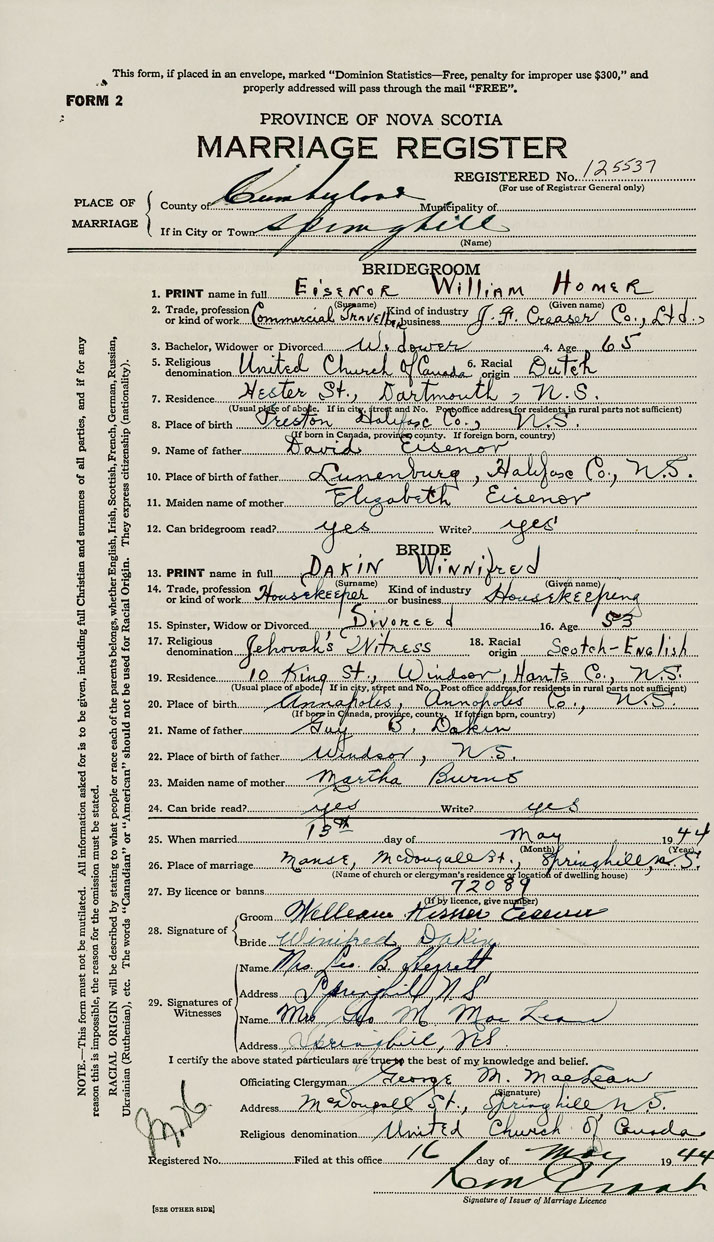 This form, if placed in an envelope, marked "Dominion Statistics—Free, penalty for improper use $300," and
properly addressed will pass through the mail "FREE".
FORM 2
PROVINCE OF NOVA SCOTIA
MARRIAGE REGISTER
REGISTERED No. 125537
(For use of Registrar General only)
PLACE OF MARRIAGE
County of Cumberland Municipality of
If in City or Town Springhill
(Name)
BRIDEGROOM
1. PRINT name in full EISENOR WILLIAM HOMER
(Surname) (Given name)
2. Trade, profession or kind of work Commercial Traveller Kind of industry or business J. A. Creaser Co., Ltd.,
3. Bachelor, Widower or Divorced Widower 4. Age 65
5. Religious denomination United Church of Canada 6. Racial origin Dutch
7. Residence Hester St., Dartmouth, N.S.
(Usual place of abode. If in city, street and No. Post office address for residents in rural parts not sufficient)
8. Place of birth Preston Halifax Co., N.S.
(If born in Canada, province, county. If foreign born, country)
9. Name of father David Eisenor
10. Place of birth of father Lunenburg, Halifax Co., N.S.
11. Maiden name of mother Elizabeth Eisenor
12. Can bridegroom read? yes Write? yes
BRIDE
13. PRINT name in full DAKIN WINNIFRED
(Surname) (Given name)
14. Trade, profession or kind of work Housekeeper Kind of industry or business Housekeeping
15. Spinster, Widow or Divorced Divorced 16. Age 53
17. Religious denomination Jehovah's Witness 18. Racial origin Scotch-English
19. Residence 10 King St., Windsor, Hants Co., N.S.
(Usual place of abode. If in city, street and No. Post office address for residents in rural parts not sufficient)
20. Place of birth Annapolis, Annapolis Co., N.S.
(If born in Canada, province, county. If foreign born, country)
21. Name of father Guy B. Dakin
22. Place of birth of father Windsor, N.S.
23. Maiden name of mother Martha Burns
24. Can bride read? yes Write? yes
25. When married 13th day of May 1944
(Month) (Year)
26. Place of marriage Manse, McDougall St., Springhill, N.S.
(Name of church or clergyman's residence or location of dwelling house)
27. By licence or banns 72089
(If by licence, give number)
28. Signature of
Groom William Homer Eisenor
Bride Winifred Dakin
29. Signatures of Witnesses
Name Mrs. Geo. B.
Address Springhill N S
Name Mrs Geo M MacLean
Address Springhill, NS
I certify the above stated particulars are true to the best of my knowledge and belief.
Officiating Clergyman George M. MacLean
(Signature)
Address McDougall St., Springhill N.S.
Religious denomination United Church of Canada
Registered No. Filed at this office 16 day of May 1944
Signature of Issuer of Marriage Licence
[SEE OTHER SIDE]
NOTE.—This form must not be mutilated. All information asked for is to be given, including full Christian and surnames of all parties, and if for any
reason this is impossible, the reason for the omission must be stated.
RACIAL ORIGIN will be described by stating to what people or race each of the parents belongs, whether English, Irish, Scottish, French, German, Russian,
Ukrainian (Ruthenian), etc. The words "Canadian" or "American" should not be used for Racial Origin. They express citizenship (nationality).